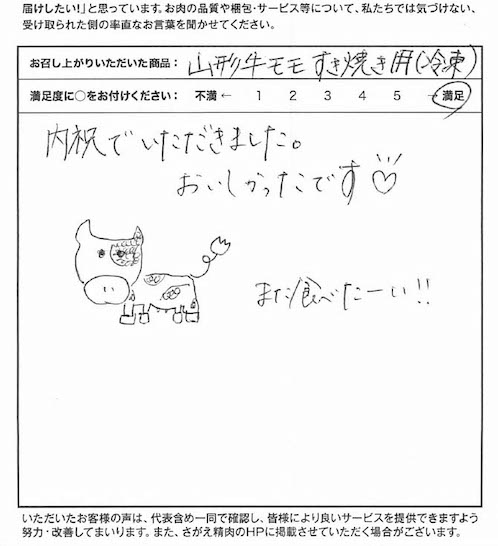 届けしたい！」と思っています。お肉の品質や梱包・サービス等について、私たちでは気づけない、
受け取られた側の率直なお言葉を聞かせてください。
お召し上がりいただいた商品： 山形牛モモ すき焼き用(冷凍)
満足度に○をお付けください： 不満 ← 1 2 3 4 5 → 満足
内祝でいただきました。
おいしかったです♡
また食べたーい!!
いただいたお客様の声は、代表含め一同で確認し、皆様により良いサービスを提供できますよう
努力・改善してまいります。また、さがえ精肉のHPに掲載させていただく場合がございます。